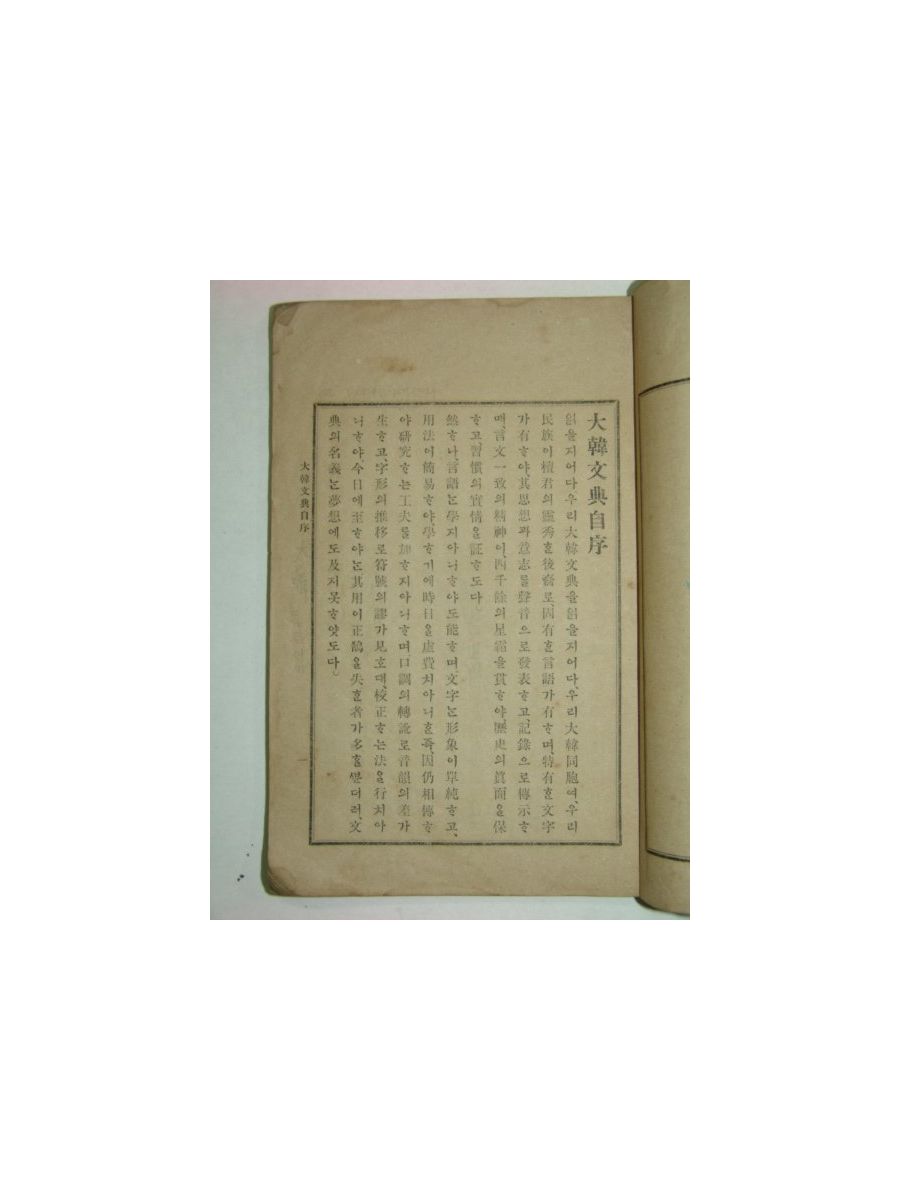 大韓文典自序
읽을지어다우리大韓文典을읽을지어다,우리大韓同胞여,우리
民族이檀君의靈秀ᄒᆞᆫ後裔로,固有ᄒᆞᆫ言語가有ᄒᆞ며,特有ᄒᆞᆫ文字
가有ᄒᆞ야,其思想과意志를聲音으로發表ᄒᆞ고,記錄으로傳示ᄒᆞ
매,言文一致의精神이,四千餘의星霜을貫ᄒᆞ야,歷史의眞面을保
ᄒᆞ고,習慣의實情을証ᄒᆞ도다。
然ᄒᆞ나,言語ᄂᆞᆫ學지아니ᄒᆞ야도能ᄒᆞ며,文字ᄂᆞᆫ形象이單純ᄒᆞ고,
用法이簡易ᄒᆞ야學ᄒᆞ기에時日을虛費치아니ᄒᆞᆫ즉,因仍相傳ᄒᆞ
야硏究ᄒᆞᄂᆞᆫ工夫를加ᄒᆞ지아니ᄒᆞ며,口調의轉訛로音韻의差가
生ᄒᆞ고,字形의推移로符號의謬가見호대,校正ᄒᆞᄂᆞᆫ法을行치아
니ᄒᆞ야,今日에至ᄒᆞ야ᄂᆞᆫ其用이正鵠을失ᄒᆞᆫ者가多ᄒᆞᆯᄲᅮᆫ더러,文
典의名義ᄂᆞᆫ夢想에도及지못ᄒᆞ얏도다。
大韓文典自序
一